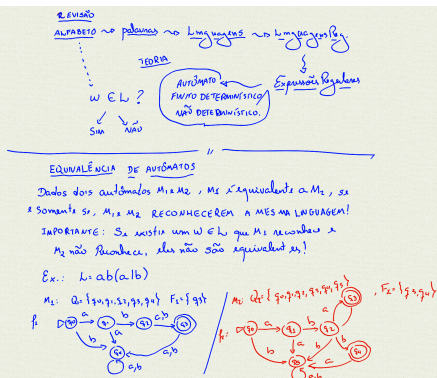 REVISÃO
ALFABETO ~> palavras ~> Linguagens ~> Linguagens Reg.
TEORIA
Expressões Regulares
AUTÔMATO
FINITO DETERMINÍSTICO/
NÃO DETERMINÍSTICO.
w ∈ L ?
SIM NÃO
EQUIVALÊNCIA DE AUTÔMATOS
Dados dois autômatos M1 e M2, M1 é equivalente a M2, se
e somente se, M1 e M2 RECONHECEREM A MESMA LINGUAGEM!
IMPORTANTE: Se existir um w ∈ L que M1 reconhece e
M2 não Reconhece, eles não são equivalentes!
Ex.: L = ab(a|b)
M1: Q1={q0,q1,q2,q3,q4} F1={q3}
q0 a q1 b q2 a,b q3
b a a,b
q4
a,b
M2: Q2={q0,q1,q2,q3,q4,q5}, F2={q3,q4}
q3
a
q0 a q1 b q2
b a b a b
q5 a q4
a,b